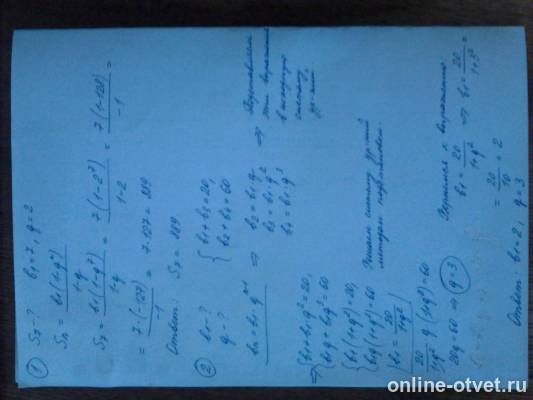 ① S₇ - ? b₁ = 7, q = 2
Sₙ = b₁(1-qⁿ) / 1-q
S₇ = b₁(1-q⁷) / 1-q = 7(1-2⁷) / 1-2 = 7(1-128) / -1 =
= 7·(-127) / -1 = 7·127 = 889
Ответ: S₇ = 889
② b₁ - ? { b₁+b₃=20,
q - ? { b₂+b₄=60
bₙ = b₁·qⁿ⁻¹ ⇒ b₂=b₁·q
b₃=b₁·q²
b₄=b₁·q³
⇒ Подставляем
эти выражения
в исходную
систему
ур-ний
⇒ { b₁+b₁q²=20,
{ b₁q+b₁q³=60
{ b₁(1+q²)=20,
{ b₁q(1+q²)=60
Решаем систему ур-ний
методом подстановки.
b₁ = 20 / 1+q²
20 / 1+q² · q(1+q²)=60
20q=60 ⇒ q=3
Вернемся к выражению
b₁ = 20 / 1+q² ⇒ b₁ = 20 / 1+3² =
= 20 / 10 = 2
Ответ: b₁=2, q=3
online-otvet.ru